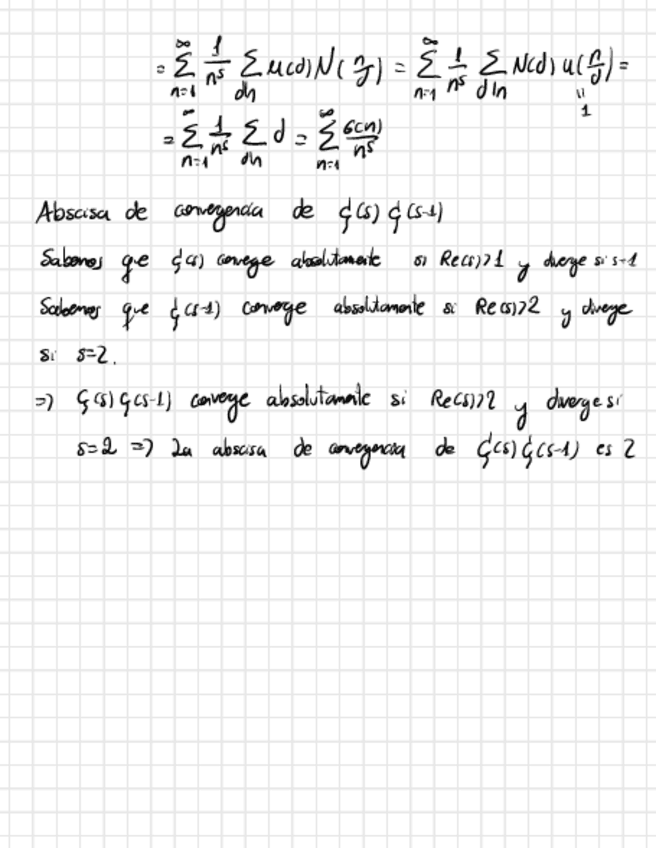 = ∑_{n=1}^{∞} 1/n^s ∑_{d|n} u(d) N(n/d) = ∑_{n=1}^{∞} 1/n^s ∑_{d|n} N(d) u(n/d) =
" 1
= ∑_{n=1}^{∞} 1/n^s ∑_{d|n} d = ∑_{n=1}^{∞} σ(n)/n^s
Abscisa de convergencia de ζ(s) ζ(s-1)
Sabemos que ζ(s) converge absolutamente si Re(s)>1 y diverge si s=1
Sabemos que ζ(s-1) converge absolutamente si Re(s)>2 y diverge
si s=2.
=> ζ(s) ζ(s-1) converge absolutamente si Re(s)>2 y diverge si
s=2 => La abscisa de convergencia de ζ(s) ζ(s-1) es 2